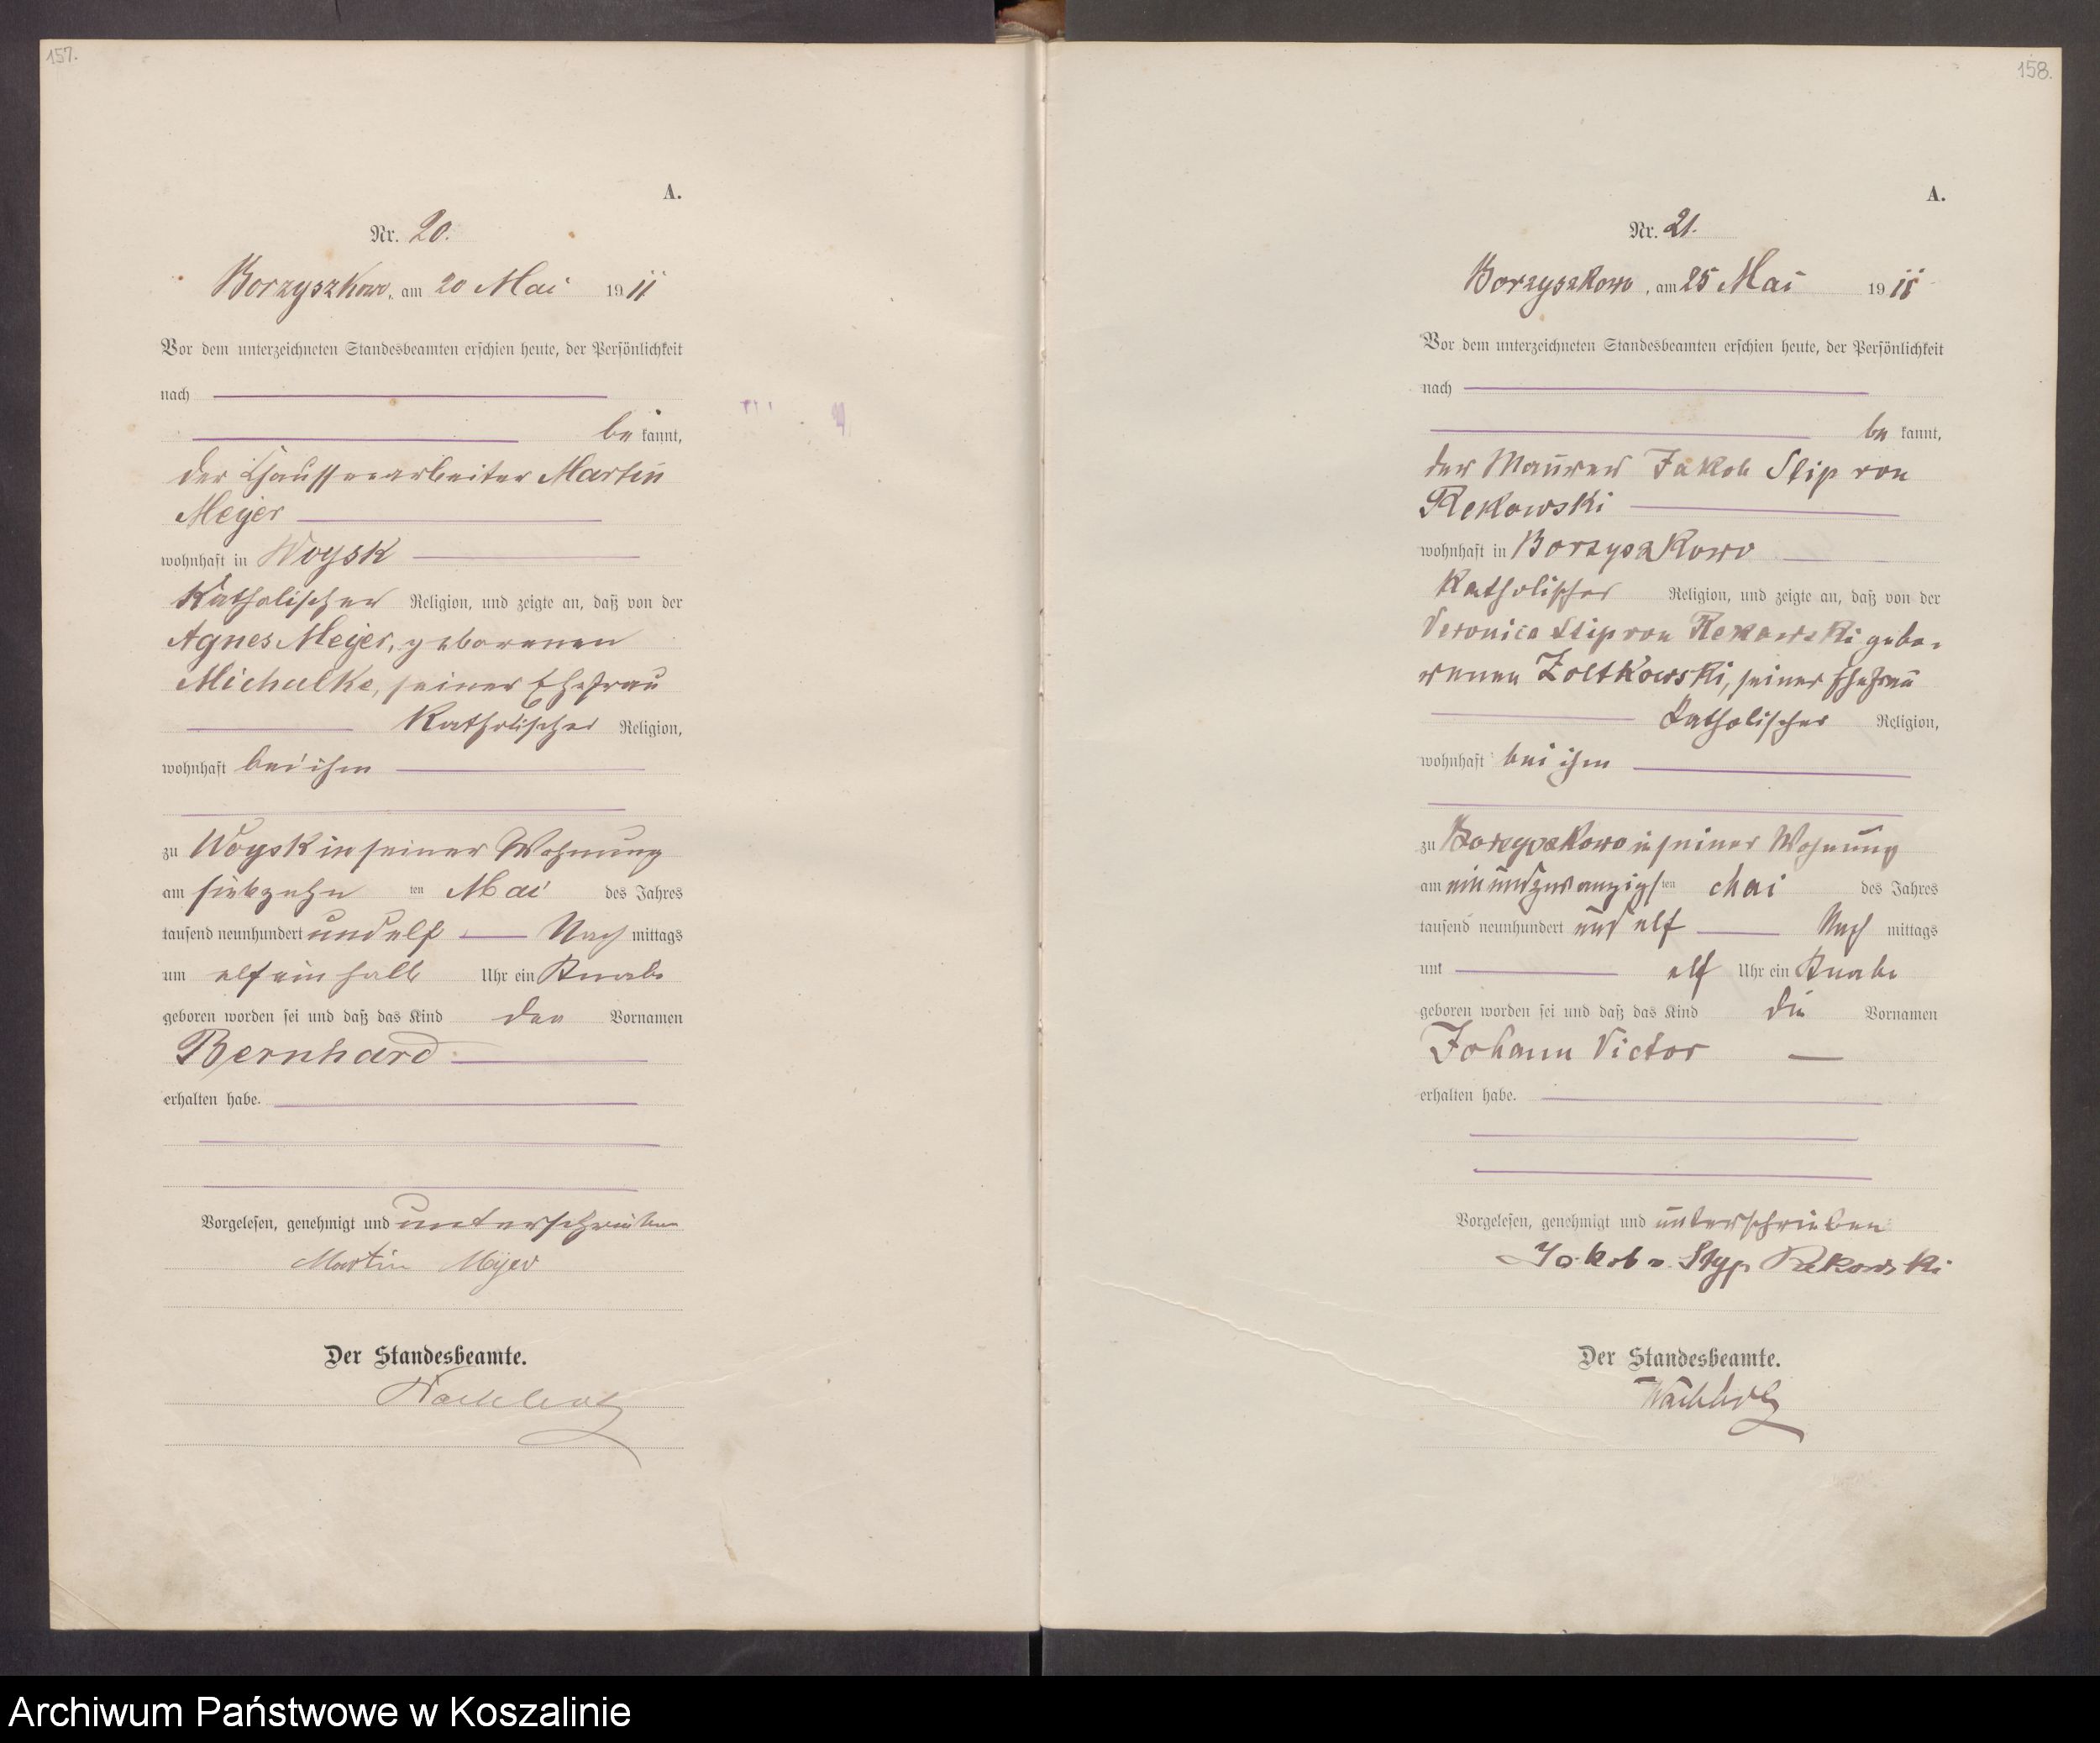 157.
A.
Nr. 20.
Borzyszkowo, am 20 Mai 1911
Vor dem unterzeichneten Standesbeamten erschien heute, der Persönlichkeit
nach
be kannt,
der Chausseearbeiter Martin
Meyer
wohnhaft in Woysk
Katholischer Religion, und zeigte an, daß von der
Agnes Meyer, geborenen
Michalke, seiner Ehefrau
Katholischer Religion,
wohnhaft bei ihm
zu Woysk in seiner Wohnung
am siebzehn ten Mai des Jahres
tausend neunhundert und elf Nach mittags
um elf ein halb Uhr ein Knabe
geboren worden sei und daß das Kind den Vornamen
Bernhard
erhalten habe.
Vorgelesen, genehmigt und unterschrieben
Martin Meyer
Der Standesbeamte.
158.
A.
Nr. 21.
Borzyszkowo, am 25 Mai 1911
Vor dem unterzeichneten Standesbeamten erschien heute, der Persönlichkeit
nach
be kannt,
der Maurer Jakob Stip von
Rekowski
wohnhaft in Borzyszkowo
Katholischer Religion, und zeigte an, daß von der
Veronica Stip von Rekowski gebo-
renen Zoltkowski, seiner Ehefrau
Katholischer Religion,
wohnhaft bei ihm
zu Borzyszkowo in seiner Wohnung
am ein und zwanzigsten Mai des Jahres
tausend neunhundert und elf Nach mittags
um elf Uhr ein Knabe
geboren worden sei und daß das Kind die Vornamen
Johann Victor
erhalten habe.
Vorgelesen, genehmigt und unterschrieben
Jakob v. Styp Rekowski
Der Standesbeamte.
Archiwum Państwowe w Koszalinie